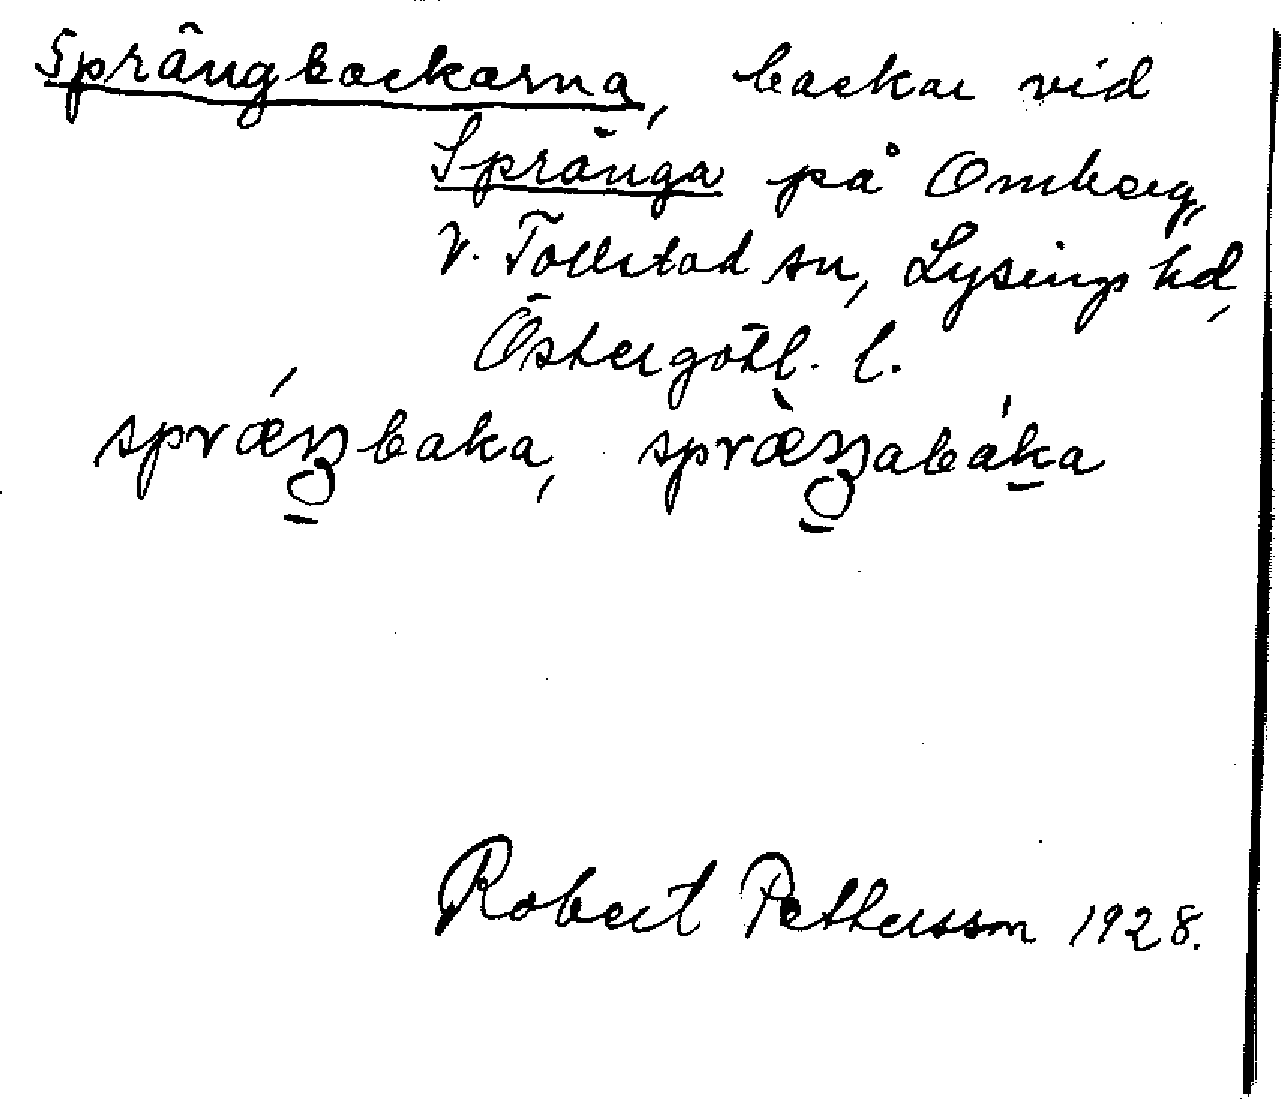 Sprängbackarna, backar vid
Spränga på Omberg,
V. Tollstad sn, Lysings hd,
Östergötl. l.
sprǽŋbaka, spræ̀ŋabáka
Robert Pettersson 1928.